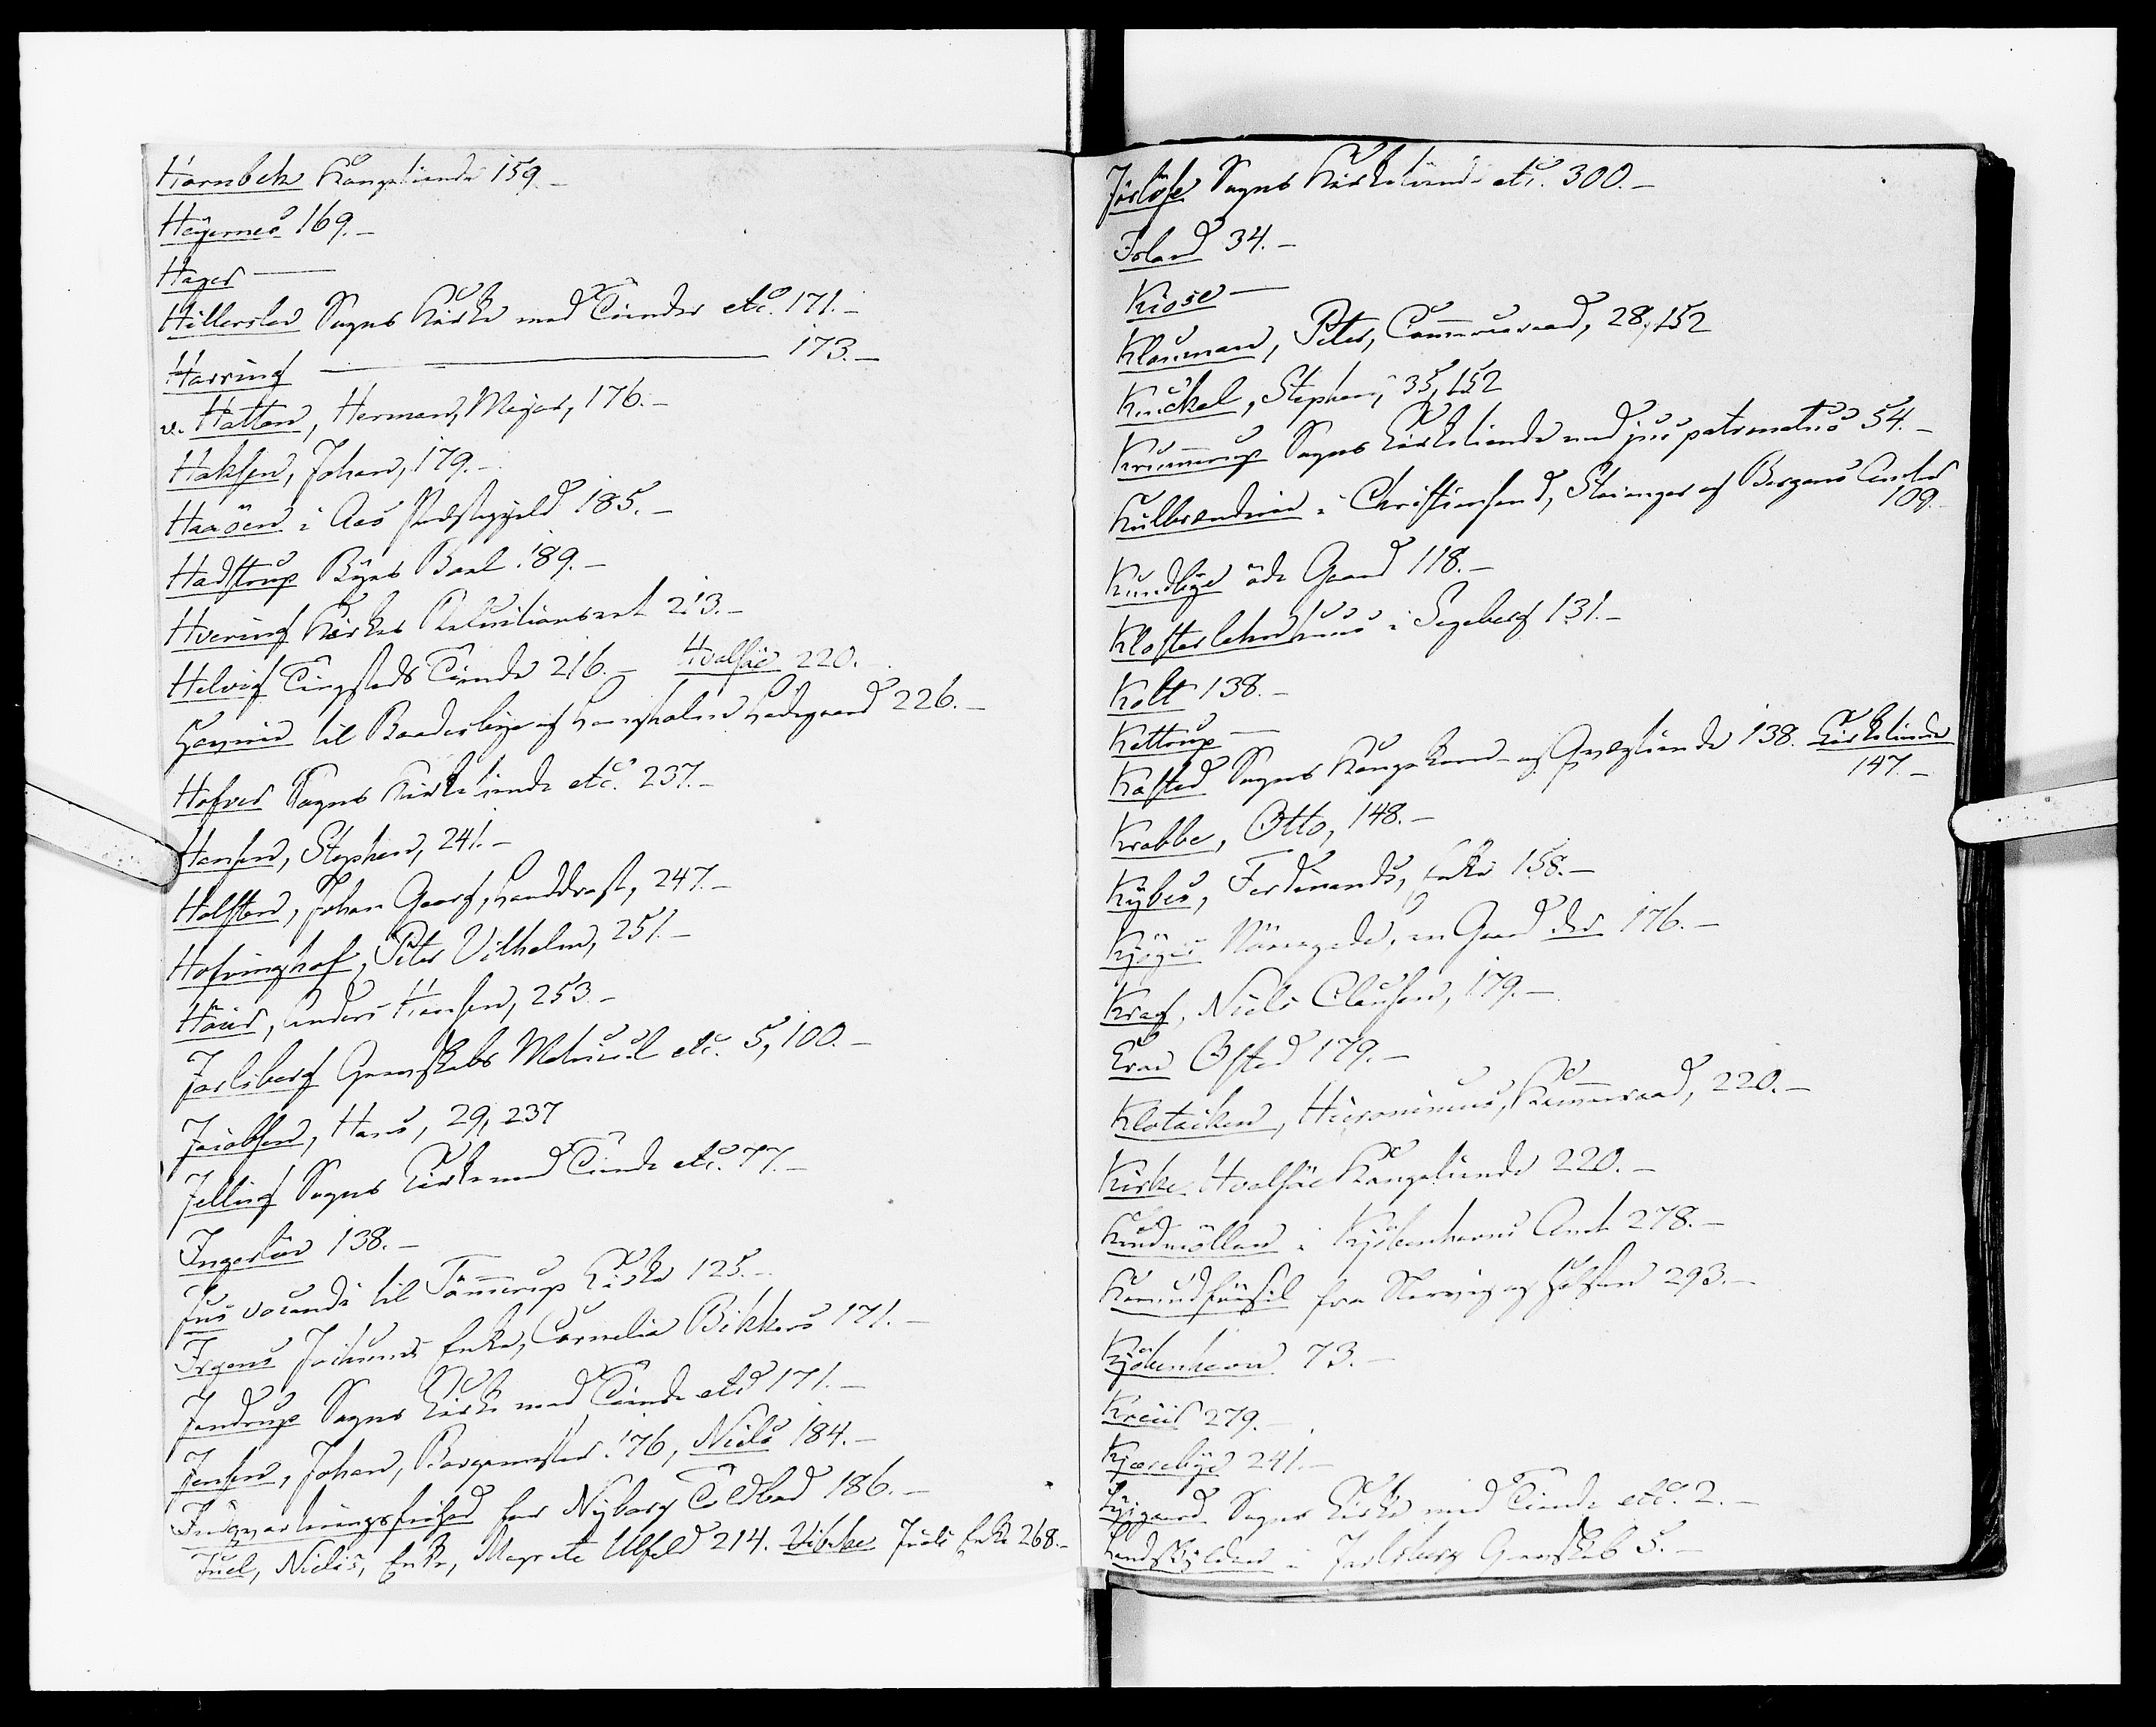 Hornbek Kongetiende 159.-
Høyernes 169.-
Hager -
Hillerslev Sogns Kirke med Tiender etc. 171.-
Harring - 173.-
v. Hatten, Herman, Major, 176.-
Haksen, Johan, 179.-
Haaöen i Aas Præstegjeld 185.-
Hadstrup Byes Bael 189.-
Hvering Kirkes Reluitionsret 213.-
Helvig Tingsteds Tiende 216.- Hvalsöe 220.-
til Baadesbye og Langholm Ladegaard 226.-
Hofver Sogns Kirketiende etc. 237.-
Hansen, Stephen, 241.-
Holsten, Johan Georg, Landdrost, 247.-
Hofvinghof, Peter Vilhelm, 251.-
Höier, Anders Hansen, 253.-
Jarlsberg Grevskabs Matricul etc. 5, 100.-
Jacobsen, Hans, 29, 237
Jelling Sogns Kirke med Tiende etc. 77.-
Ingerslev 138.-
Jus vocandi til Tömmerup Kirke 125.-
Irgens Jochums Enke, Cornelia Bikkers 171.-
Jandrup Sogns Kirke med Tiende etc 171.-
Jensen, Johan, Borgemester 176, Niels 184.-
Indqvarteringsfrihed for Nyborg Toldbod 186.-
Juel, Niels, Enke, Magrete Ulfeld 214. Vibke Juels Enke 268.-
Jörlöse Sogns Kirketiende etc. 300.-
Island 34.-
Kiose -
Klauman, Peter, Commerceraad, 28, 152
Knuckel, Stephen, 35, 152
Krummerup Sogns Kirketiende med jus patronatus 54.-
Kulbrænderie i Christiansand, Stavanger og Bergens Amter
109.-
Kundbye öde Gaard 118.-
Klosterlehnshuus i Segeberg 131.-
Kolt 138.-
Kattrup -
Kasted Sogns Konge Korn- og Qvægtiende 138. Kirketiende
147.-
Krabbe, Otto, 148.-
Kybes, Ferdinands, Enke 158.-
Kjöges Nörregade, en Gaard der 176.-
Krag, Niels Clausen, 179.-
Krae Ofsted 179.-
Klotacken, Hieronimus, Kammerraad, 220.-
Kirke Hvalsöe Kongetiende 220.-
Kudmöllen i Kjöbenhavns Amt 278.-
fra Slesvig og Holsten 293.-
Kjöbenhavn 73.-
Kreiis 279.-
Kjærebye 241.-
Lysgaard Sogns Kirke med Tiende etc. 2.-
Landskylden i Jarlsberg Grevskab 5.-